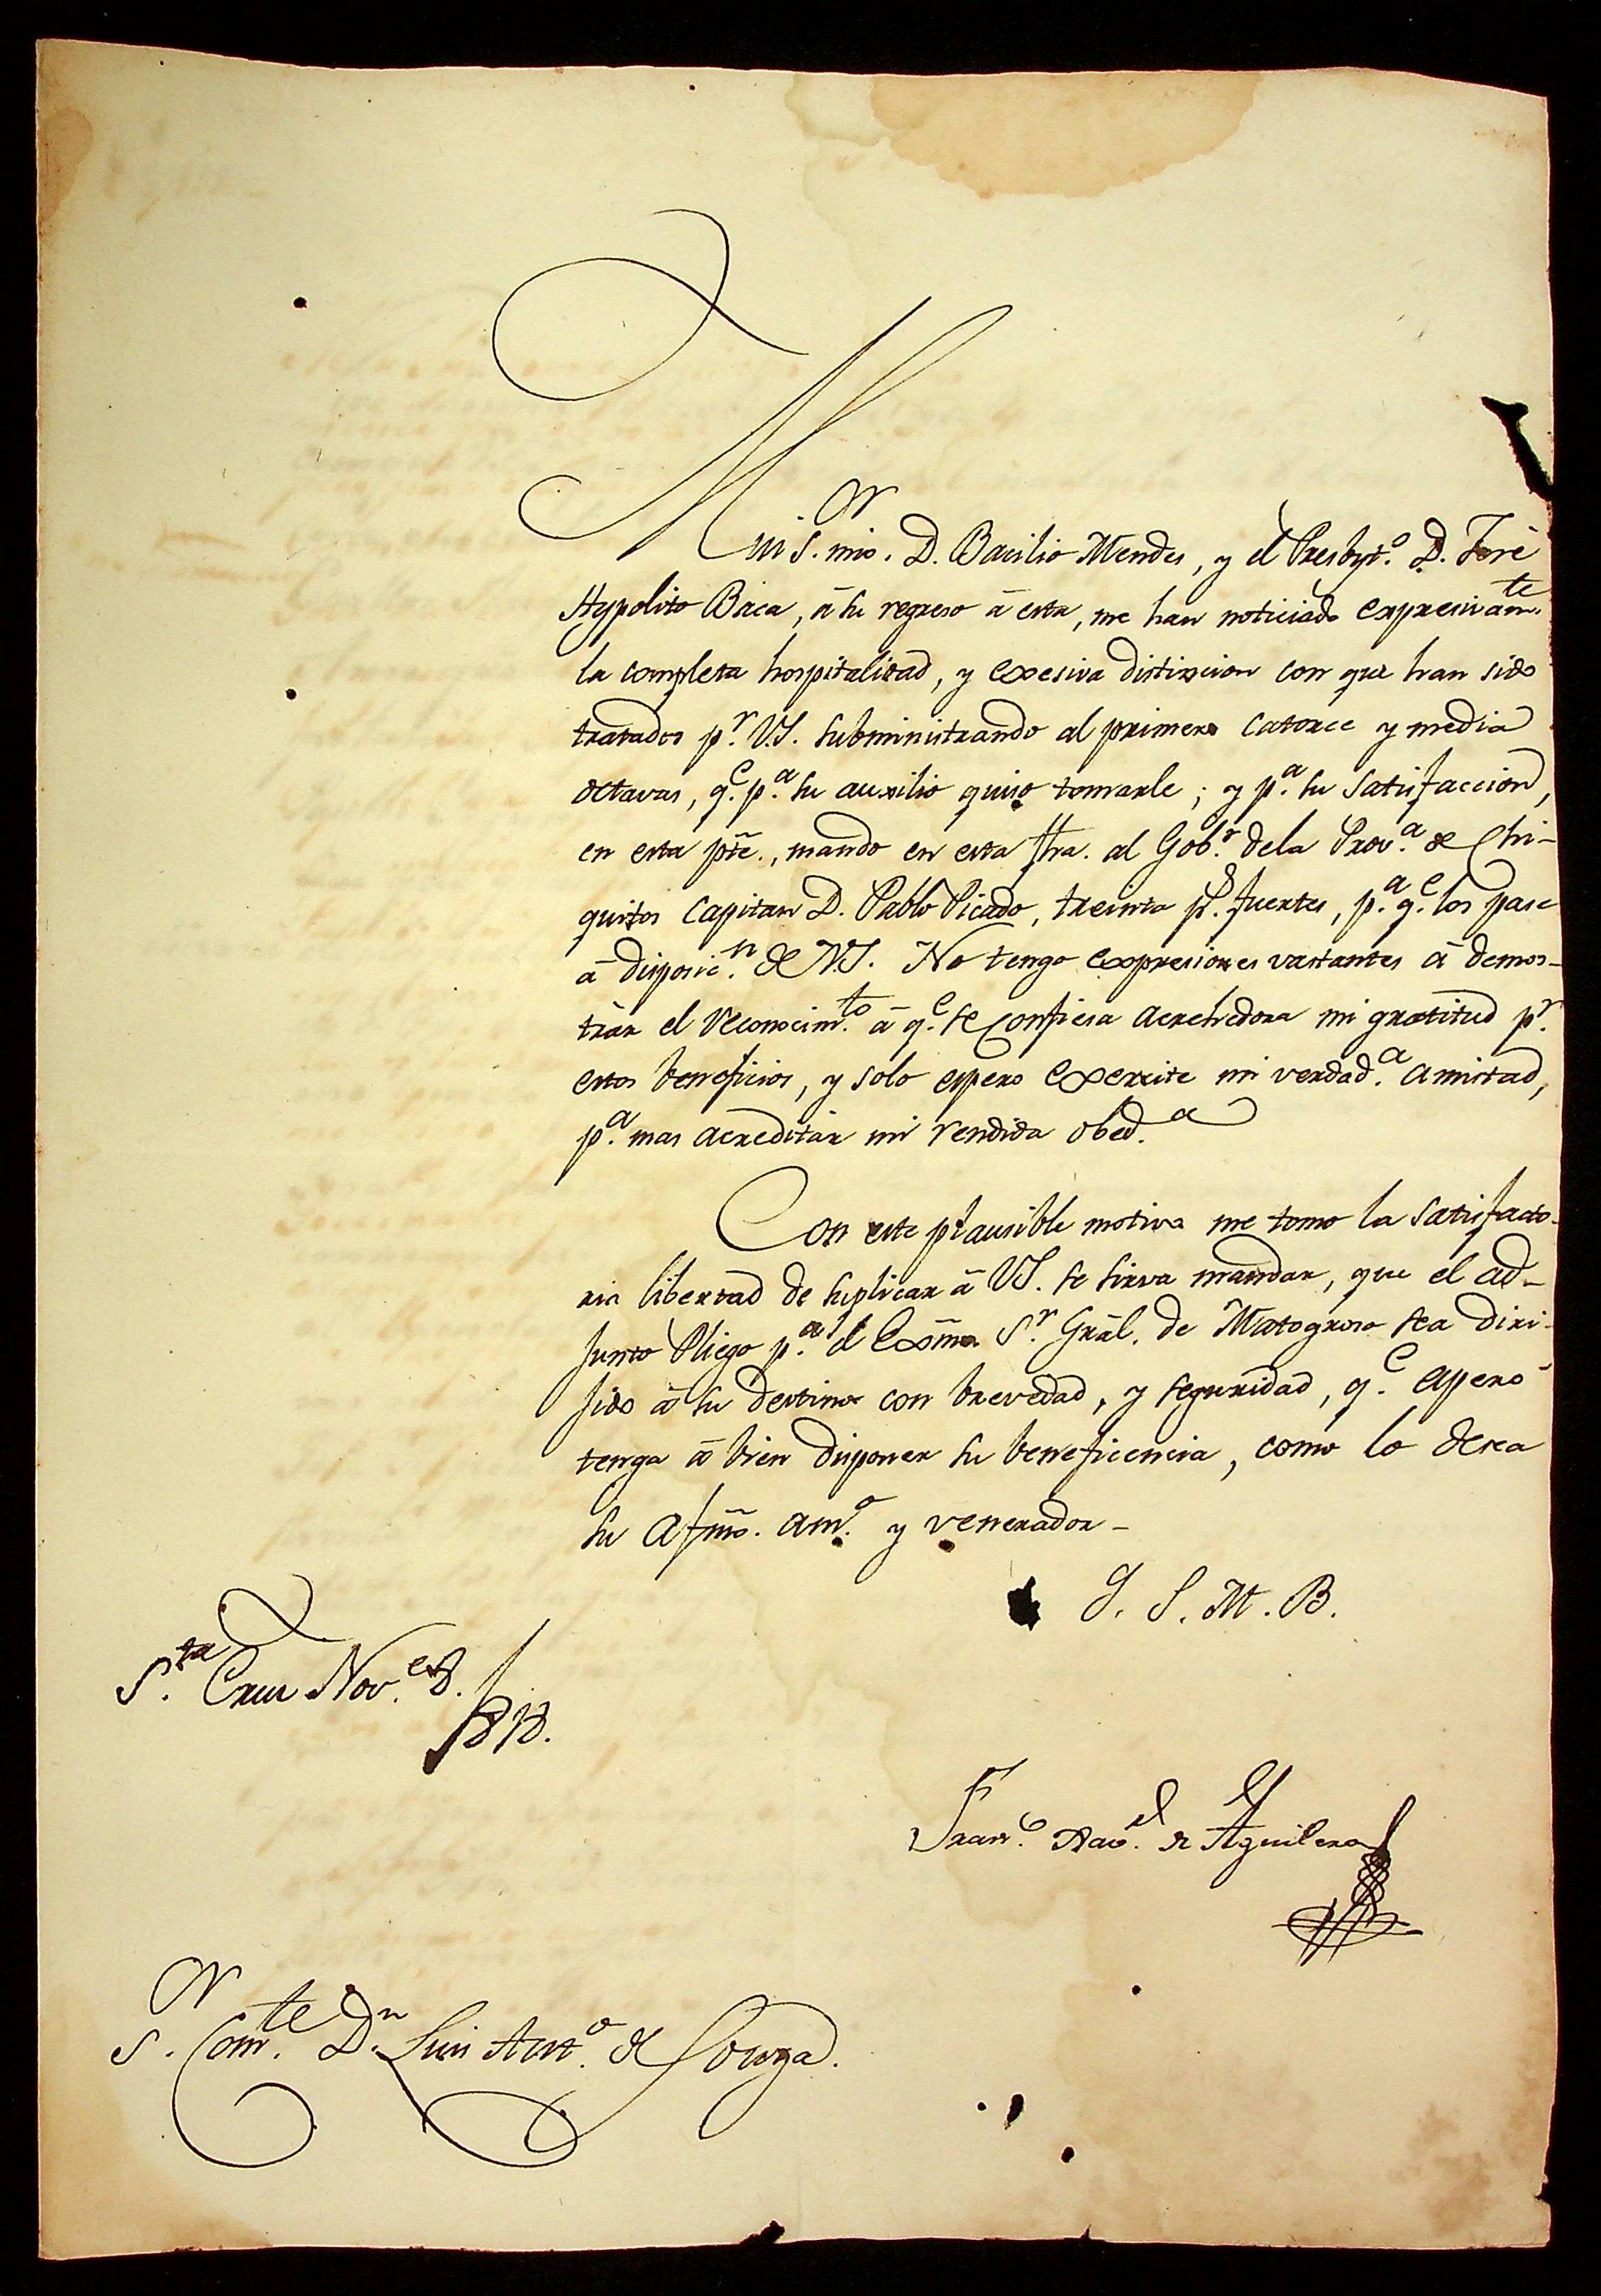 Mui S.or mio. D. Bacilio Mendes, y el Presbyt.o D. José
Hypolito Baca, â su regreso â esta, me han noticiado expresivam.te
la completa hospitalidad, y exesiva distincion con que han sido
tratados p.r V.S. subministrando al primero catorce y media
octavas, q.e p.a su auxilio quiso tomarle; y p.a su satisfaccion,
en esta pte., mando en esta fha. al Gob.r dela Prov.a de Chi-
quitos Capitan D. Pablo Picado, treinta p.s fuertes, p.a q.e los pase
â disposic.n de V.S. No tengo expresiones vastantes â demos-
trar el reconocim.to â q.e se confiesa acrehedora mi gratitud p.r
estos beneficios, y solo espero exercite mi verdad.a amistad,
p.a mas acreditar mi rendida obed.a
Con este plausible motivo me tomo la satisfacto-
ria libertad de suplicar â VS. se sirva mandar, que el ad-
junto Pliego p.a el Exmo. S.r Gral. de Matogroso sea diri-
jido â su destino con brevedad, y seguridad, q.e espero
tenga â bien disponer su beneficencia, como lo desea
su Afmo. am.o y venerador-
Q. S. M. B.
S.ta Cruz Nov.e 8. /
1818.
Fran.co Xav.el de Aguilera
S.or Com.te D.n Luis Ant.o de Souza.